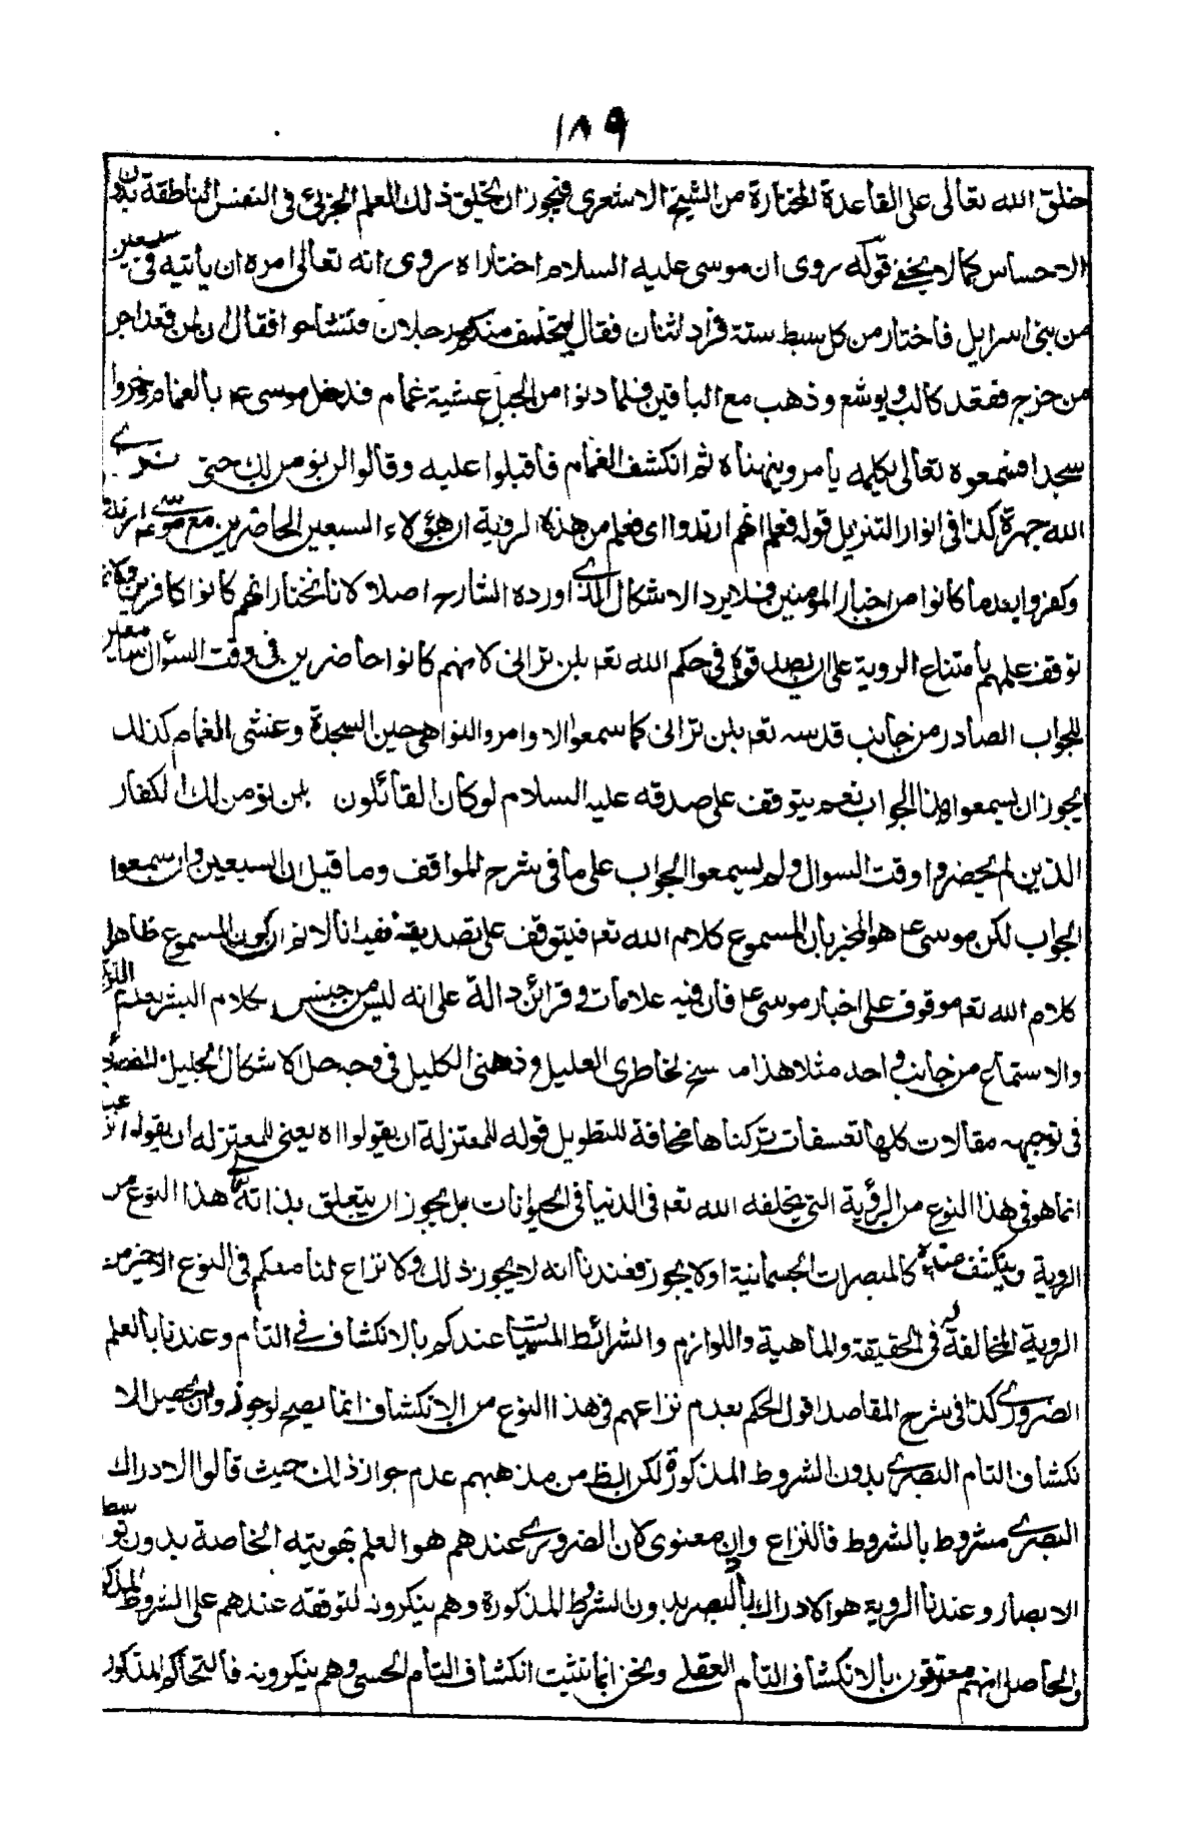 ١٨٩
خلق الله تعالى على القاعدة المختارة من الشيخ الاشعرى فيجوز ان يخلق ذلك العلم الجزئى فى النفس الناطقة بدون
الاحساس كما لا يخفى قوله روى ان موسى عليه السلام اختاراه روى انه تعالى امره ان يأتيه فى سبعين
من بنى اسرايل فاختار من كل سبط ستة فزاد اثنان فقال ليتخلف منكم رجلان فتشاحوا فقال ان لمن قعد اجر
من خرج فقعد كالب ويوشع وذهب مع الباقين فلما دنوا من الجبل عشية غمام فدخل موسى ع بالغمام وخروا
سجدا فسمعوه تعالى يكلمه يأمر وينهناه ثم انكشف الغمام فاقبلوا عليه وقالوا لن نؤمن لك حتى نرى
الله جهرة كذا فى انوار التنزيل قوله فعلم انهم ارتدوا اى فعلم من هذه الروية ان هؤلاء السبعين الحاضرين مع موسى ع
وكفروا بعد ما كانوا من اخيار المؤمنين فلا يرد الاشكال الذى اورده الشارح اصلا لانا نختار انهم كانوا كافرين
توقف علمهم بأمتناع الروية على ان يصدقوه فى حكم الله تعه بلن ترانى لانهم كانوا حاضرين فى وقت السؤال سامعين
للجواب الصادر من جانب قدسه تعه بلن ترانى كما سمعوا الاوامر والنواهى حين السجدة وعشى الغمام كذلك
يجوز ان يسمعوا هذا الجواب نعم يتوقف على صدقه عليه السلام لو كان القائلون بلن نؤمن لك الكفار
الذين لم يحضروا وقت السوال ولم يسمعوا الجواب على ما فى شرح المواقف وما قيل ان السبعين وان سمعوا
الجواب لكن موسى ع هو المخبر بان المسموع كلام الله تعه فيتوقف على تصديقه ففيه انا لا نم ان كون المسموع ظاهرا
كلام الله تعه موقوف على اخبار موسى ع فان فيه علامات وقرائن دالة على انه ليس من جنس كلام البشر بعدم
والاستماع من جانب واحد مثلا هذا ما سنح لخاطرى العليل وذهنى الكليل فى وجه حل الاشكال الجليل
فى توجيهه مقالات كلها تعسفات تركناها مخافة للتطويل قوله للمعتزلة ان يقولوا اه يعنى للمعتزله ان يقولوا
انما هو فى هذا النوع من الرؤية التى يخلقه الله تعه فى الدنيا فى الحيوانات بل يجوز ان يتعلق بذاته هذا النوع من
الروية وينكشف عنده كالمبصرات الجسمانية او لا يجوز فعندنا انه لا يجوز ذلك ولا نزاع لنا معكم فى النوع الاخير من
الروية المخالفة له فى الحقيقة والماهية واللوازم والشرائط المسميات عندكم بالانكشاف فى التام وعندنا بالعلم
الضرورى كذا فى شرح المقاصد اقول الحكم بعدم نزاعهم فى هذا النوع من الانكشاف انما يصح لو جوزوا حصيل الا
نكشاف التام البصرى بدون الشروط المذكورة لكن الظ من مذهبهم عدم جواز ذلك حيث قالوا الادراك
البصرى مشروط بالشروط فالنزاع وان معنوى لان الضرورى عندهم هو العلم بهويته الخاصة بدون توسط
الابصار وعندنا الروية هو الادراك بالبصر بدون الشروط المذكورة وهم ينكرونه لتوقفه عندهم على الشروط
والحاصل انهم معترفون بالانكشاف التام العقلى ونحن انما نثبت انكشاف التام الحسى وهم ينكرونه فالتحاكم المذكور